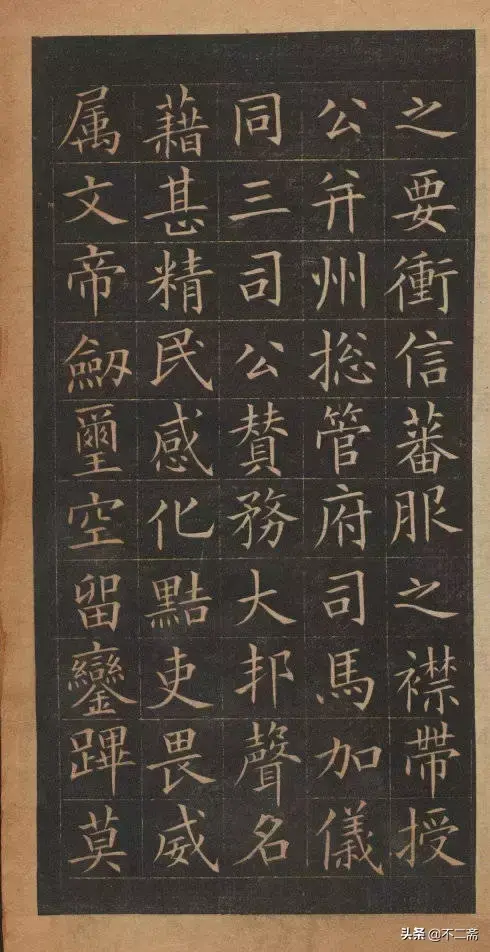 之要衝信蕃服之襟帶授
公并州捴管府司馬加儀
同三司公賛務大邦聲名
藉甚精民感化黠吏畏威
属文帝劒璽空留鑾蹕莫
头条 @不二斋